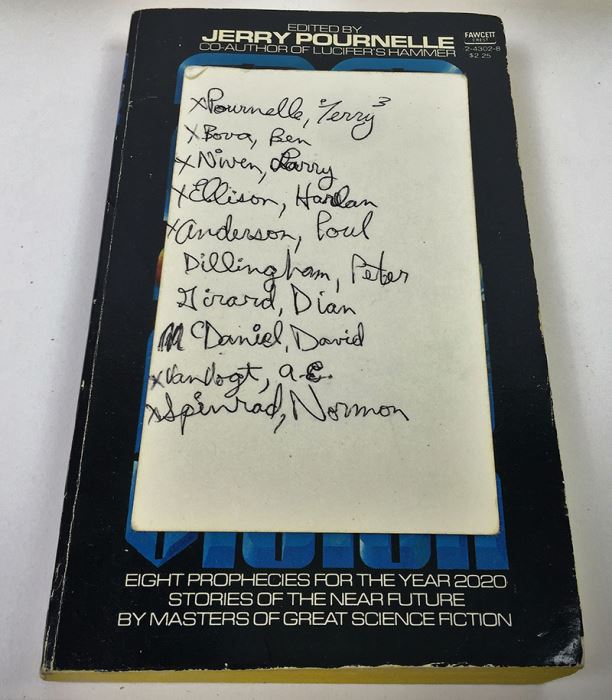 EDITED BY
JERRY POURNELLE
CO-AUTHOR OF LUCIFER'S HAMMER
FAWCETT
CREST
2-4302-8
$2.25
xPournelle, Jerry 3
xBova, Ben
xNiven, Larry
xEllison, Harlan
xAnderson, Poul
Dillingham, Peter
Girard, Dian
McDaniel, David
xVanVogt, a.E.
xSpinrad, Norman
EIGHT PROPHECIES FOR THE YEAR 2020
STORIES OF THE NEAR FUTURE
BY MASTERS OF GREAT SCIENCE FICTION